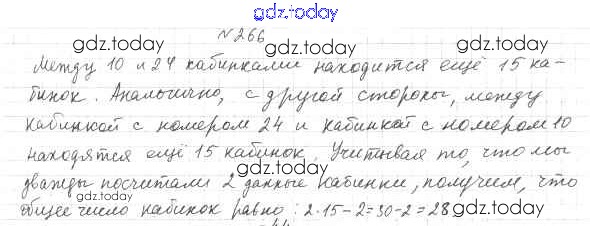 gdz.today
№266
gdz.today gdz.today
Между 10 и 24 кабинками находится ещё 15 ка-
бинок. Аналогично, с другой стороны, между
gdz.today gdz.today
кабинкой с номером 24 и кабинкой с номером 10
находятся ещё 15 кабинок. Учитывая то, что мы
gdz.today gdz.today
дважды посчитали 2 данные кабинки, получим, что
gdz.today gdz.today
общее число кабинок равно: 2·15-2=30-2=28